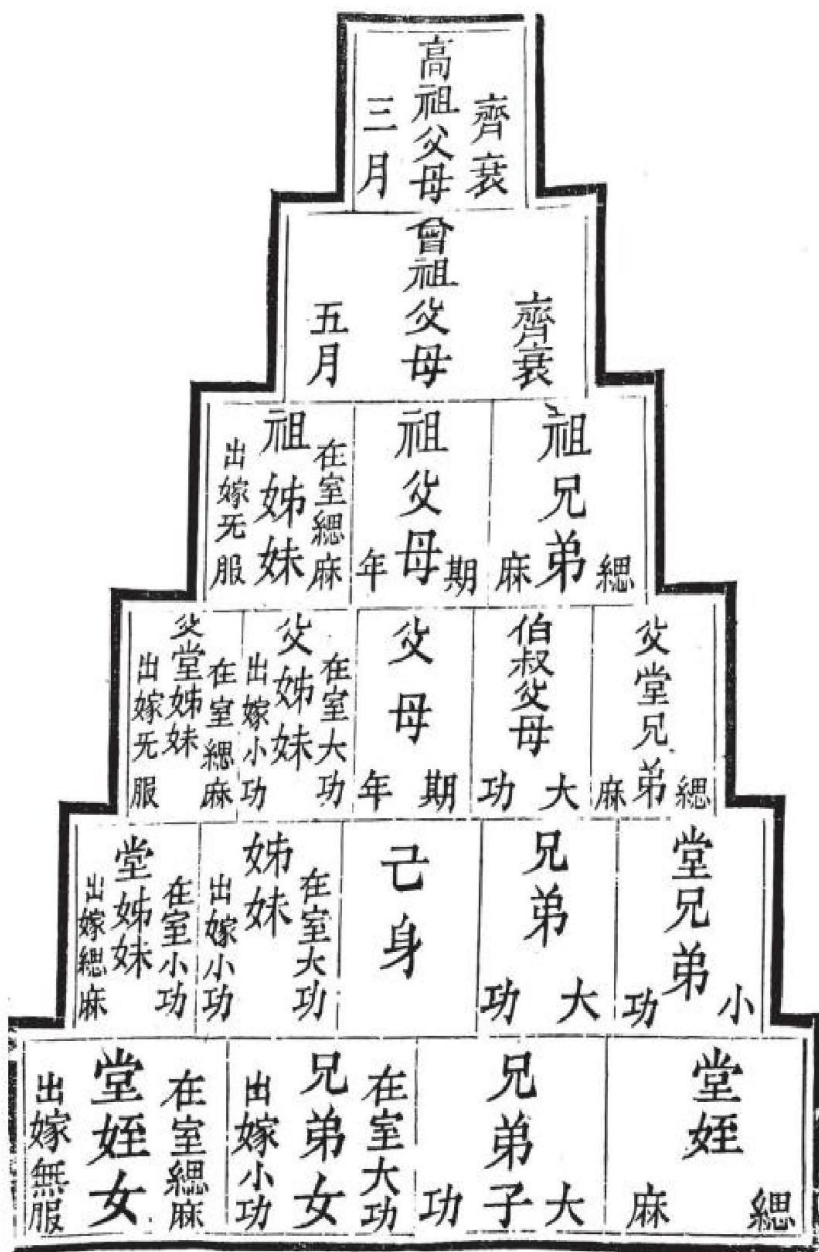 齊衰
高祖父母
三月
齊衰
曾祖父母
五月
祖兄弟
緦麻
祖父母
期年
在室緦麻
祖姊妹
出嫁无服
父堂兄弟
緦麻
伯叔父母
大功
父母
期年
在室大功
父姊妹
出嫁小功
在室緦麻
父堂姊妹
出嫁无服
堂兄弟
小功
兄弟
大功
己身
在室大功
姊妹
出嫁小功
在室小功
堂姊妹
出嫁緦麻
堂姪
緦麻
兄弟子
大功
在室大功
兄弟女
出嫁小功
在室緦麻
堂姪女
出嫁無服